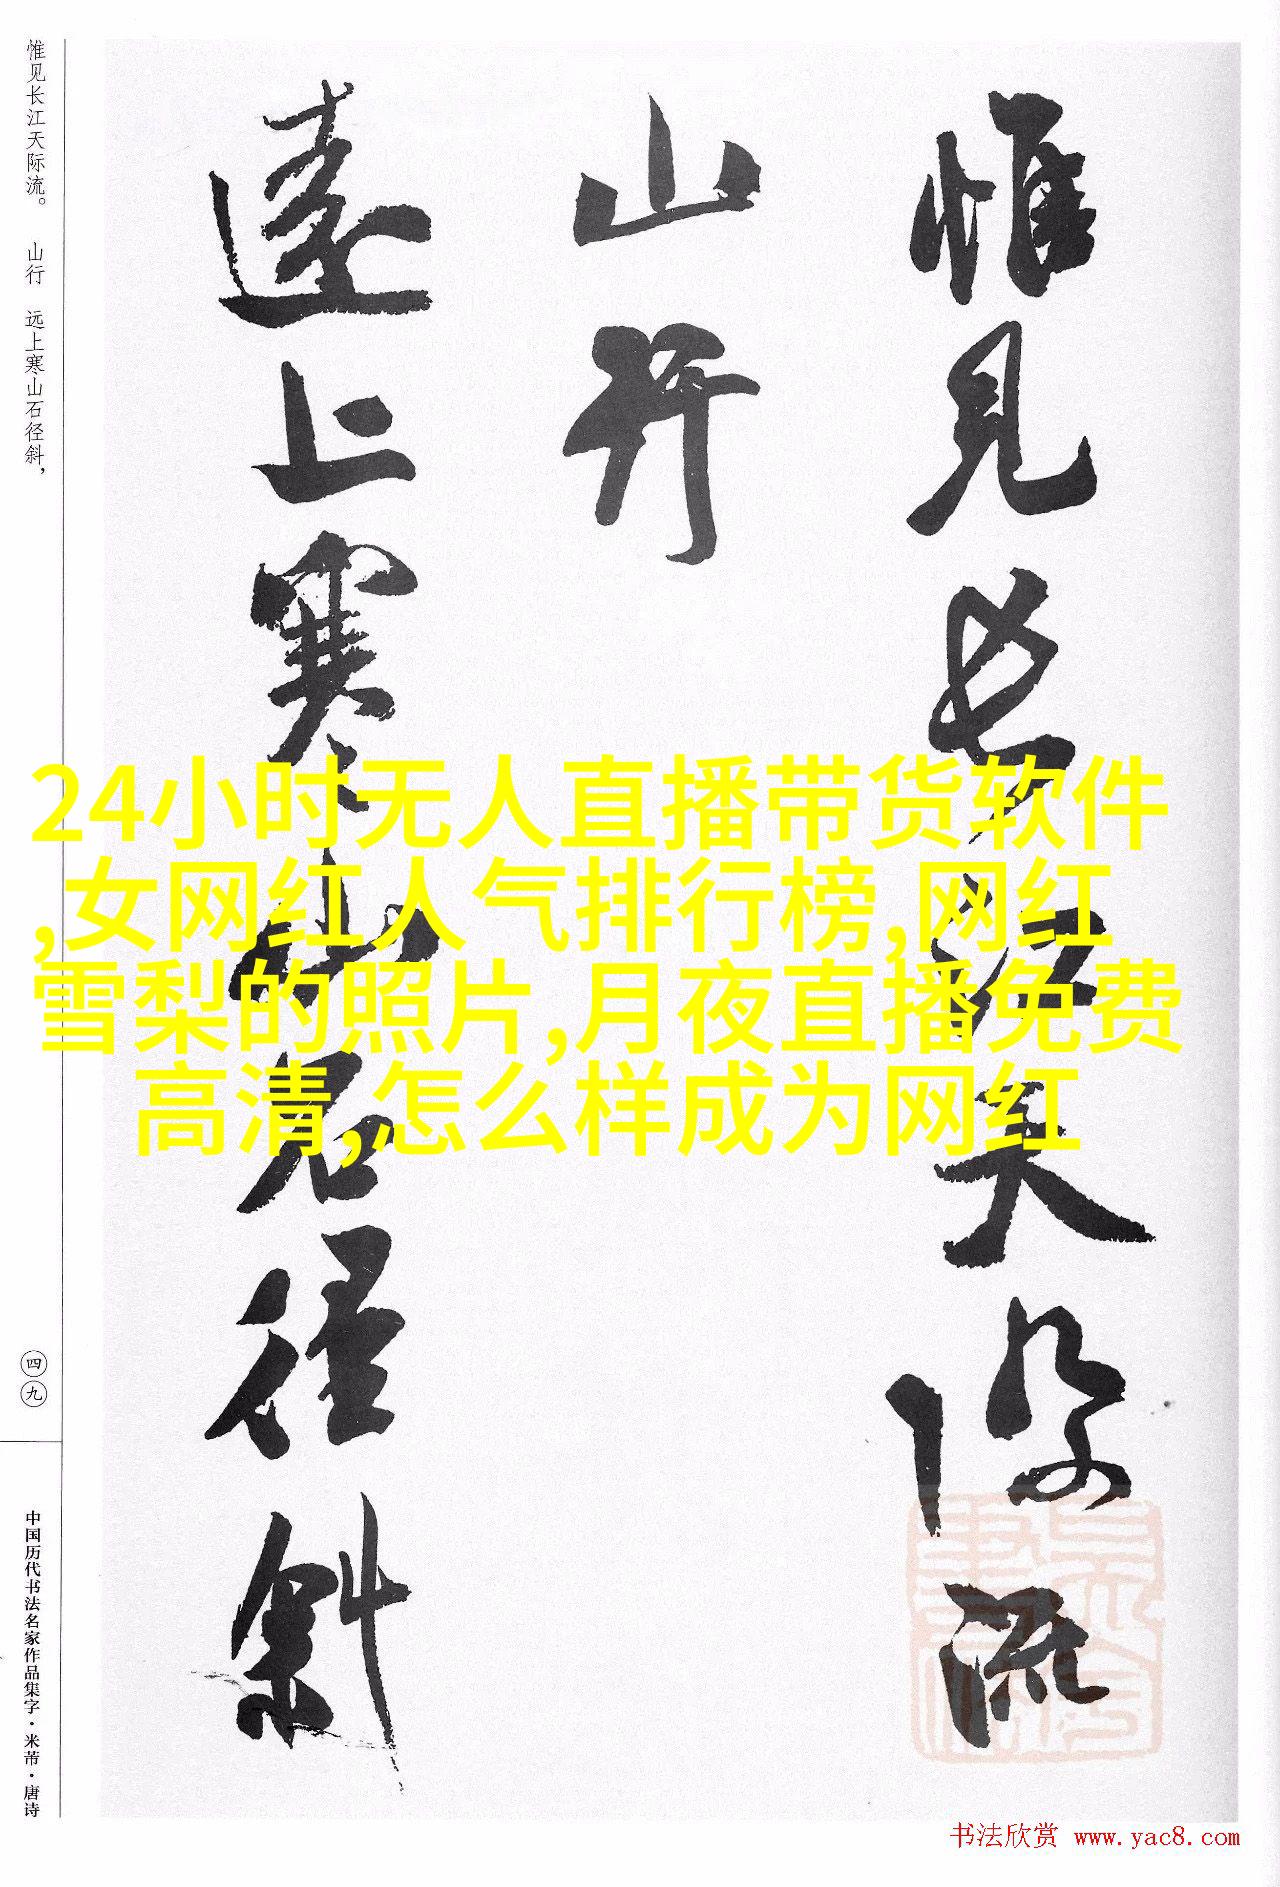 惟见长江天际流
山行
远上寒山石径斜
惟见长江天际流。 山行 远上寒山石径斜，
四九
中国历代书法名家作品集字·米芾·唐诗
24小时无人直播带货软件
,女网红人气排行榜,网红
雪梨的照片,月夜直播免费
高清,怎么样成为网红
书法欣赏 www.yac8.com